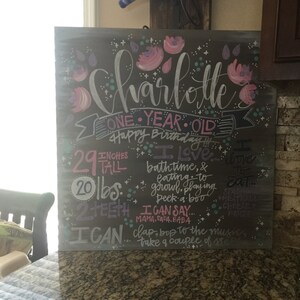 Charlotte
ONE YEAR OLD
Happy Birthday
29 INCHES TALL
I LOVE
bathtime, &
eating, to
growl, playing
peek a boo
20 lbs
TEETH
I CAN SAY
MAMA, DADA, BABA
I CAN
clap, bop to the music
take a couple of